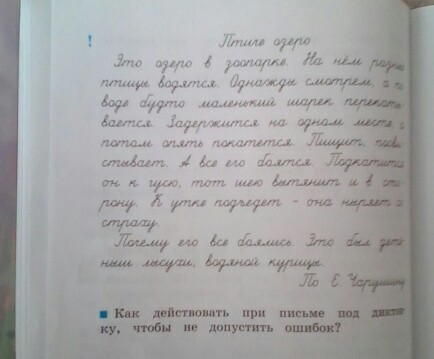 !
Птичье озеро.
Это озеро в зоопарке. На нём разные
птицы водятся. Однажды смотрим, а по
воде будто маленький шарик перекаты-
вается. Задержится на одном месте, а
потом опять покатится. Пищит, посви-
стывает. А все его боятся. Подкатится
он к гусю, тот шею вытянит и в сто-
рону. К утке подъедет - она ныряет со
страху.
Почему его все боялись. Это был дете-
ныш лысухи, водяной курицы.
По Е. Чарушину
Как действовать при письме под диктов-
ку, чтобы не допустить ошибок?